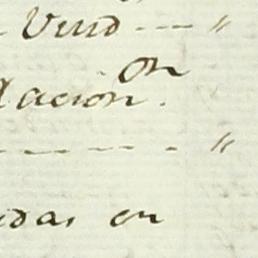 Vind --- "
on
lacion.
----- "
idas en